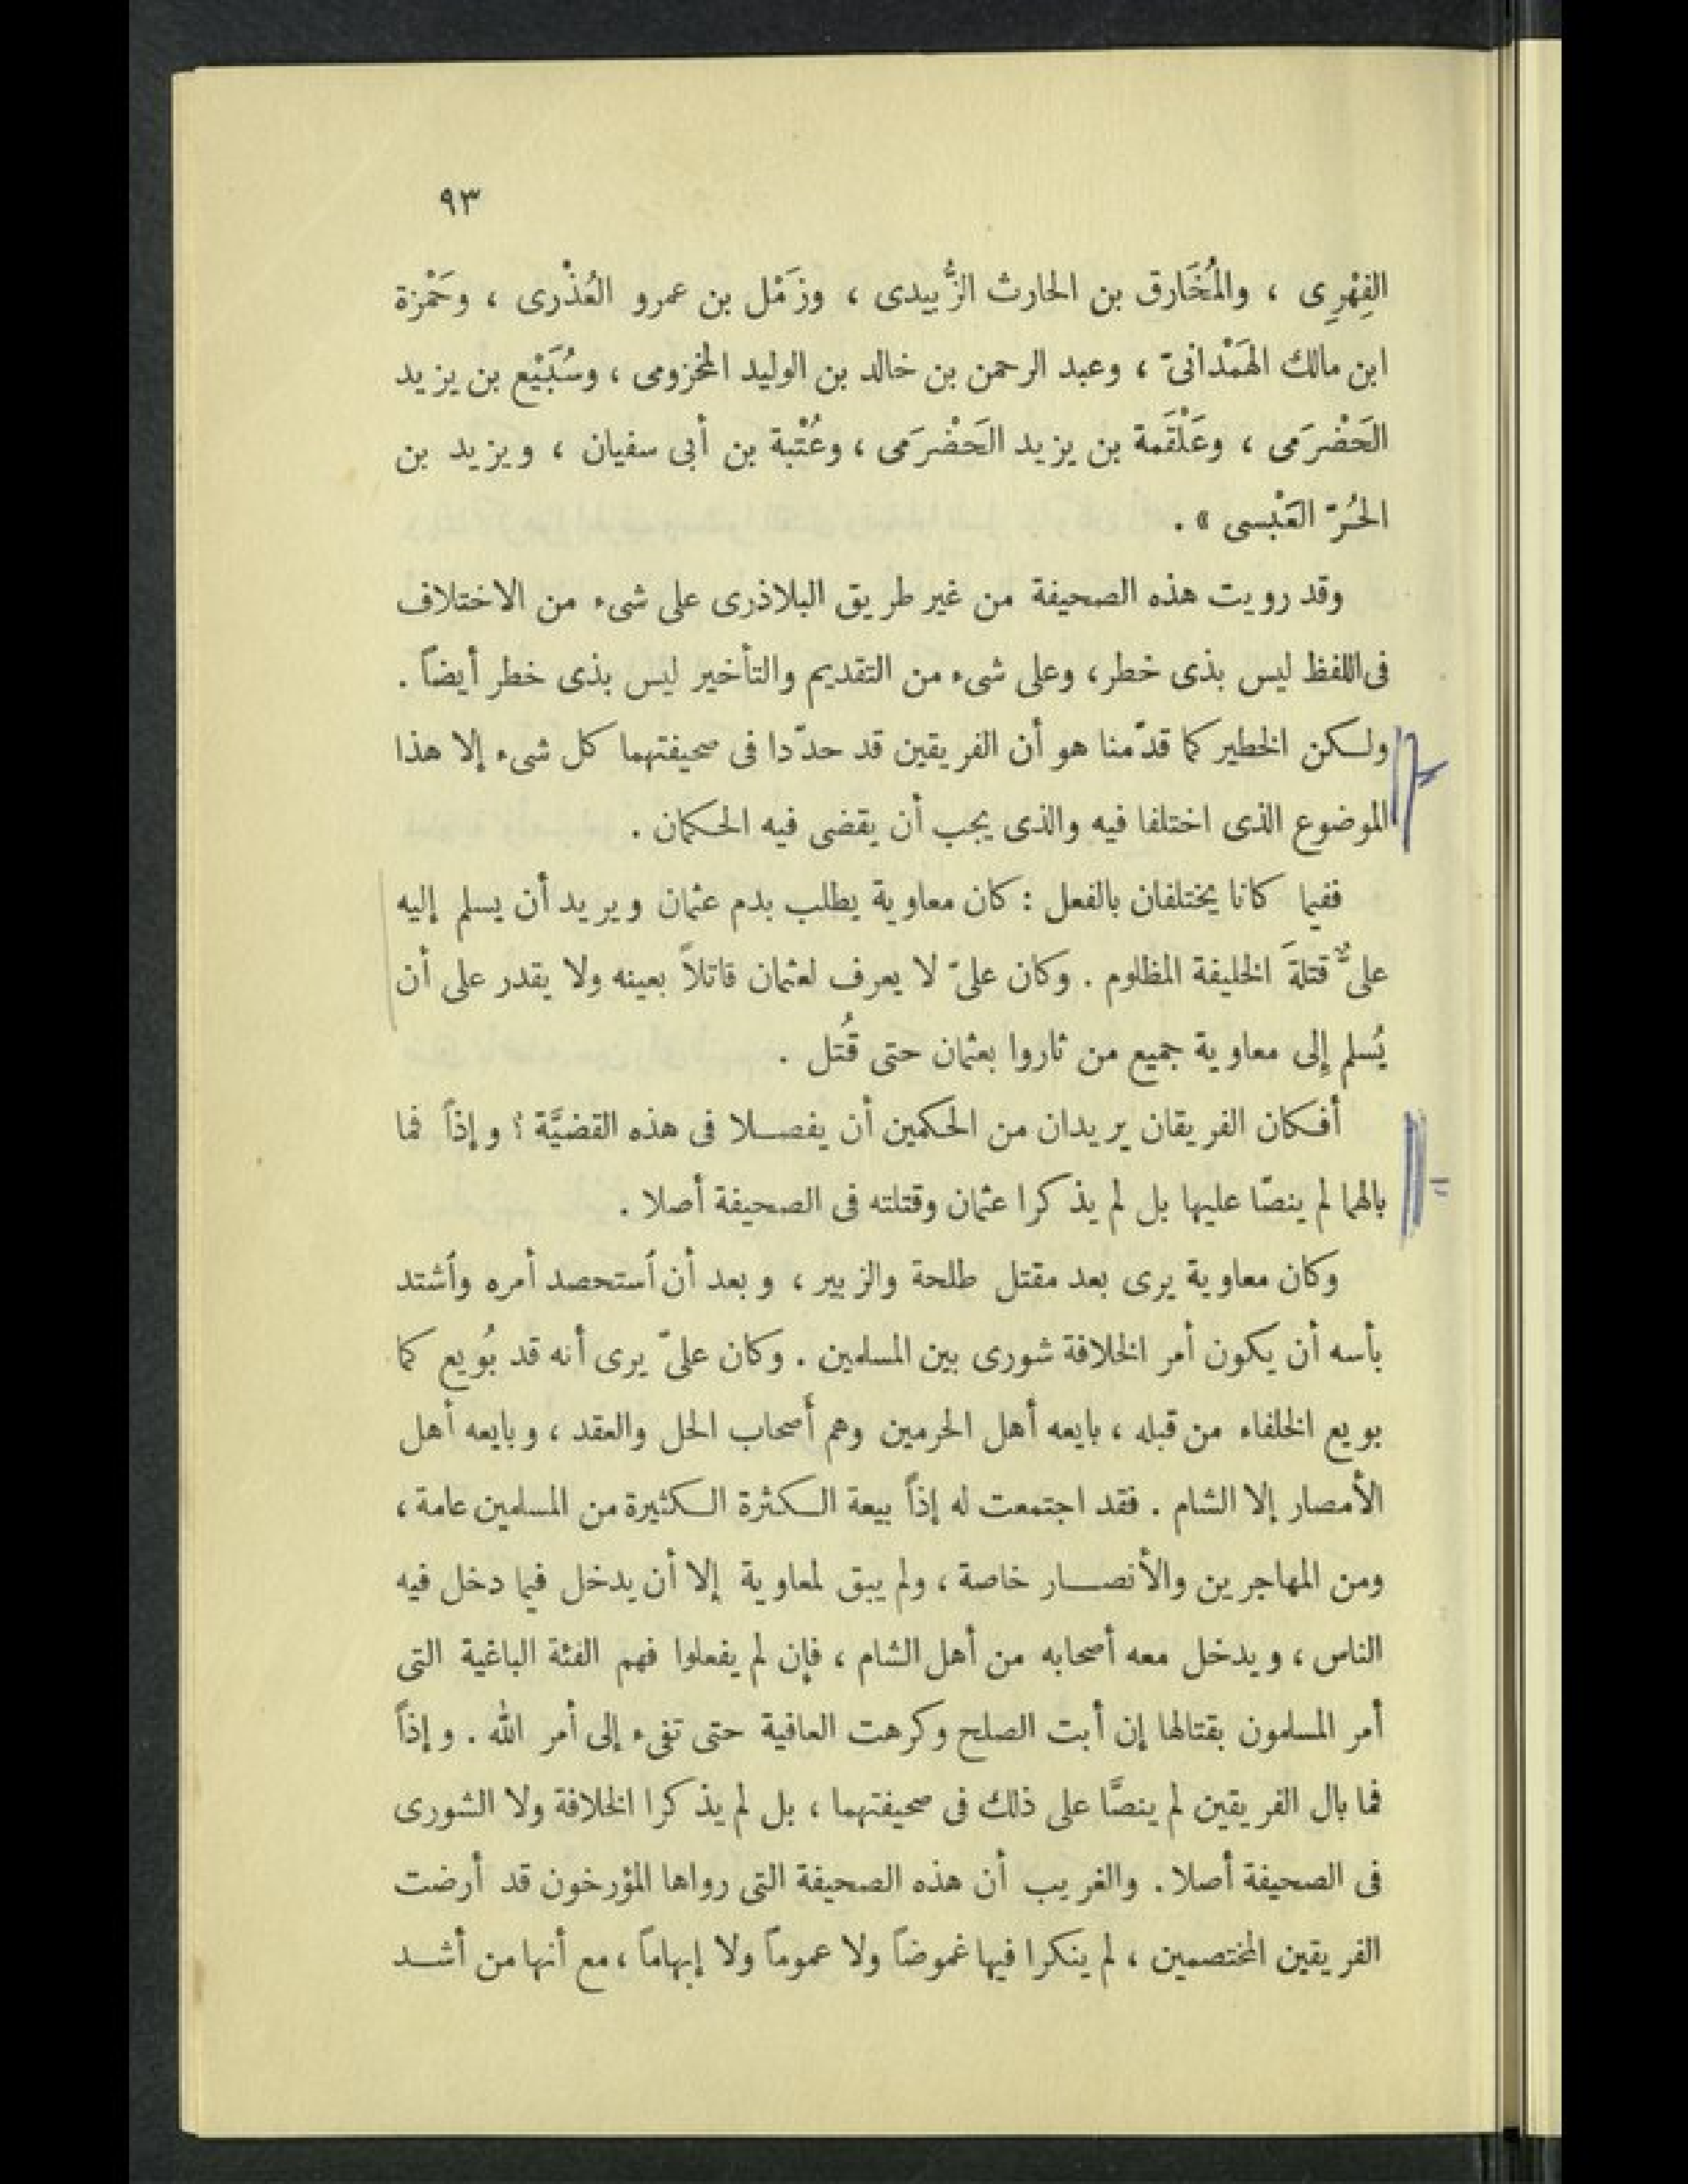 ٩٣
الفِهْرِى ، والمُخَارق بن الحارث الزُّبيدى ، وزَمْل بن عمرو العُذْرى ، وحَمْزة
ابن مالك الهَمْدانىّ ، وعبد الرحمن بن خالد بن الوليد المخزومى ، وسُبَيْع بن يزيد
الحَضْرَمى ، وعَلْقَمة بن يزيد الحَضْرَمى ، وعُتْبة بن أبى سفيان ، ويزيد بن
الحُرّ العَبْسى » .
وقد رويت هذه الصحيفة من غير طريق البلاذرى على شىء من الاختلاف
فى اللفظ ليس بذى خطر، وعلى شىء من التقديم والتأخير ليس بذى خطر أيضاً .
ولكن الخطير كما قدّمنا هو أن الفريقين قد حدّدا فى صحيفتهما كل شىء إلا هذا
الموضوع الذى اختلفا فيه والذى يجب أن يقضى فيه الحكمان .
ففيما كانا يختلفان بالفعل : كان معاوية يطلب بدم عثمان ويريد أن يسلم إليه
علىٌّ قتلةَ الخليفة المظلوم . وكان علىّ لا يعرف لعثمان قاتلاً بعينه ولا يقدر على أن
يُسلم إلى معاوية جميع من ثاروا بعثمان حتى قُتل .
أفكان الفريقان يريدان من الحكمين أن يفصلا فى هذه القضيَّة ؟ وإذاً فما
بالهما لم ينصّا عليها بل لم يذكرا عثمان وقتلته فى الصحيفة أصلا .
وكان معاوية يرى بعد مقتل طلحة والزبير ، وبعد أن ٱستحصد أمره وٱشتد
بأسه أن يكون أمر الخلافة شورى بين المسلمين . وكان علىّ يرى أنه قد بُويع كما
بويع الخلفاء من قبله ، بايعه أهل الحرمين وهم أصحاب الحل والعقد ، وبايعه أهل
الأمصار إلا الشام . فقد اجتمعت له إذاً بيعة الكثرة الكثيرة من المسلمين عامة ،
ومن المهاجرين والأنصار خاصة ، ولم يبق لمعاوية إلا أن يدخل فيما دخل فيه
الناس ، ويدخل معه أصحابه من أهل الشام ، فإن لم يفعلوا فهم الفئة الباغية التى
أمر المسلمون بقتالها إن أبت الصلح وكرهت العافية حتى تفىء إلى أمر الله . وإذاً
فما بال الفريقين لم ينصَّا على ذلك فى صحيفتهما ، بل لم يذكرا الخلافة ولا الشورى
فى الصحيفة أصلا . والغريب أن هذه الصحيفة التى رواها المؤرخون قد أرضت
الفريقين المختصمين ، لم ينكرا فيها غموضاً ولا عموماً ولا إبهاماً ، مع أنها من أشد